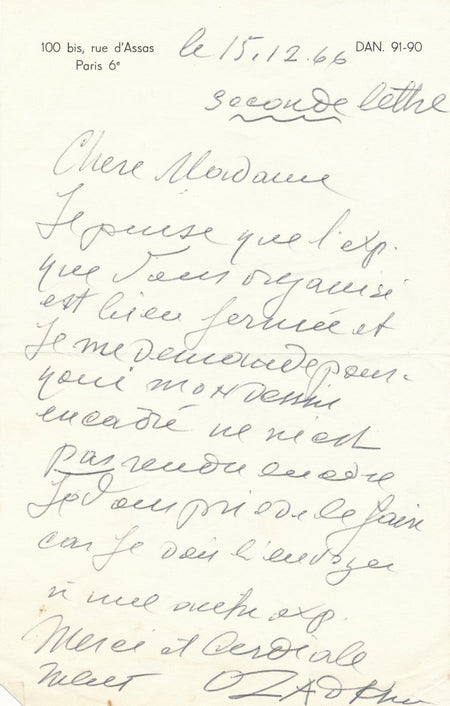 100 bis, rue d'Assas
Paris 6e
DAN. 91-90
le 15.12.66
seconde lettre
Chere Madame
Je pense que l'exp.
que Vous organisé
est bien fermée et
Je me demande pour-
quoi mon dessin
encadré ne m'est
pas rendu encore
Je Vous prie de le faire
car Je dois l'envoyer
à une autre exp.
Merci et Cordiale
ment O ZADKINE